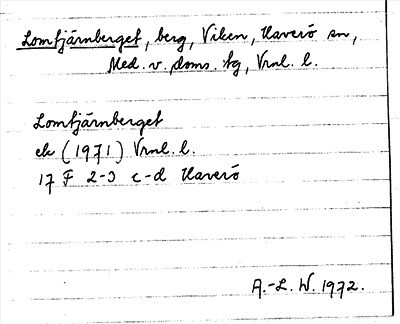 Lomtjärnberget, berg, Viken, Haverö sn,
Med. v. doms. tg, Vrnl. l.
Lomtjärnberget
ek (1971) Vrnl. l.
17 F 2-3 c-d Haverö
A.-L. W. 1972.